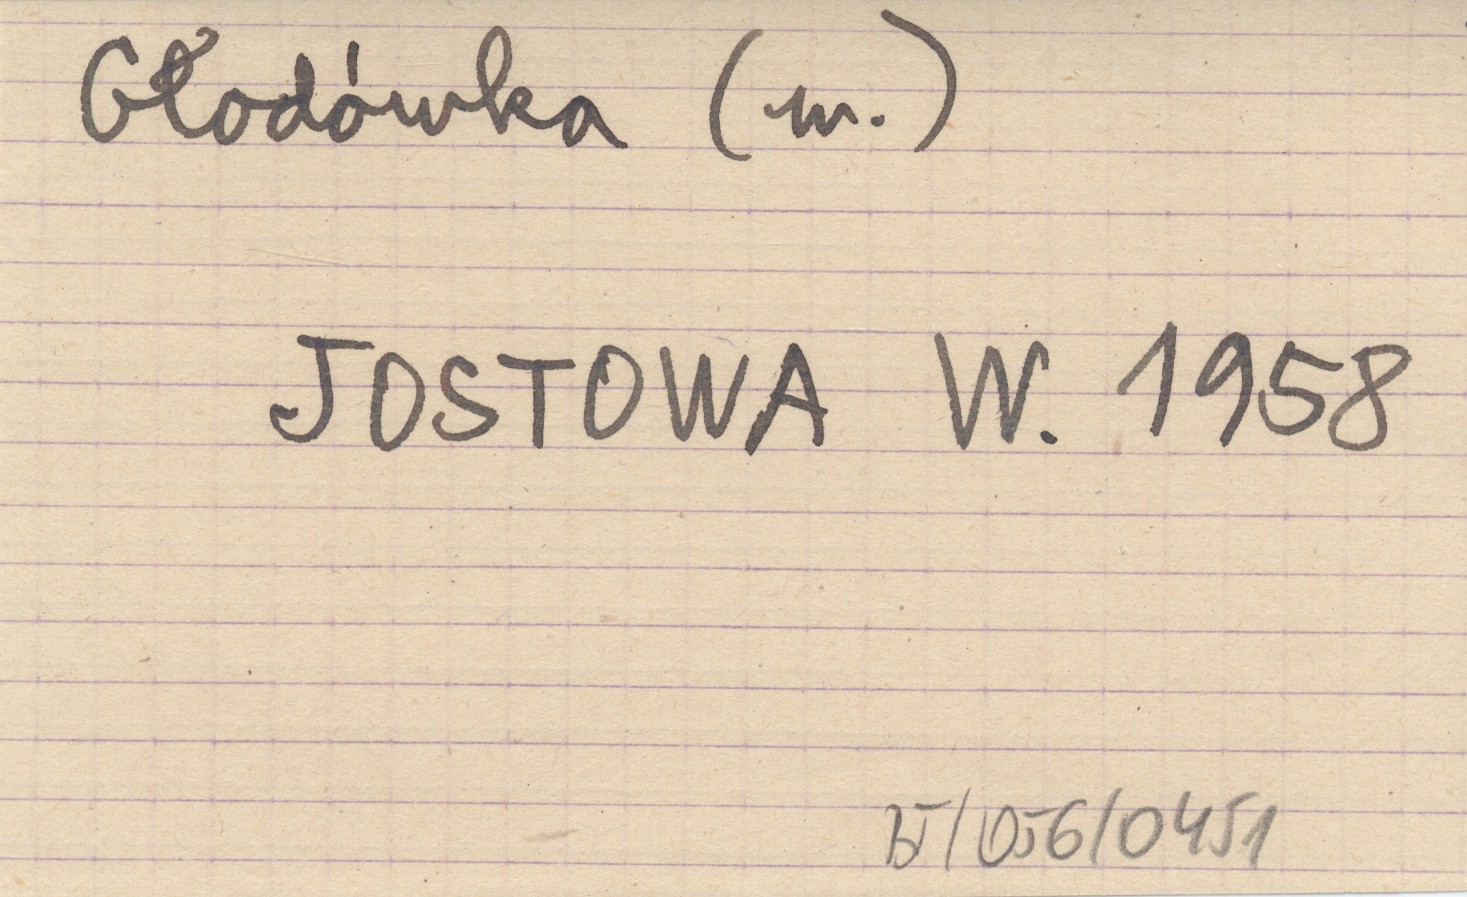 Głodówka (m.)
JOSTOWA W. 1958
/056/0451